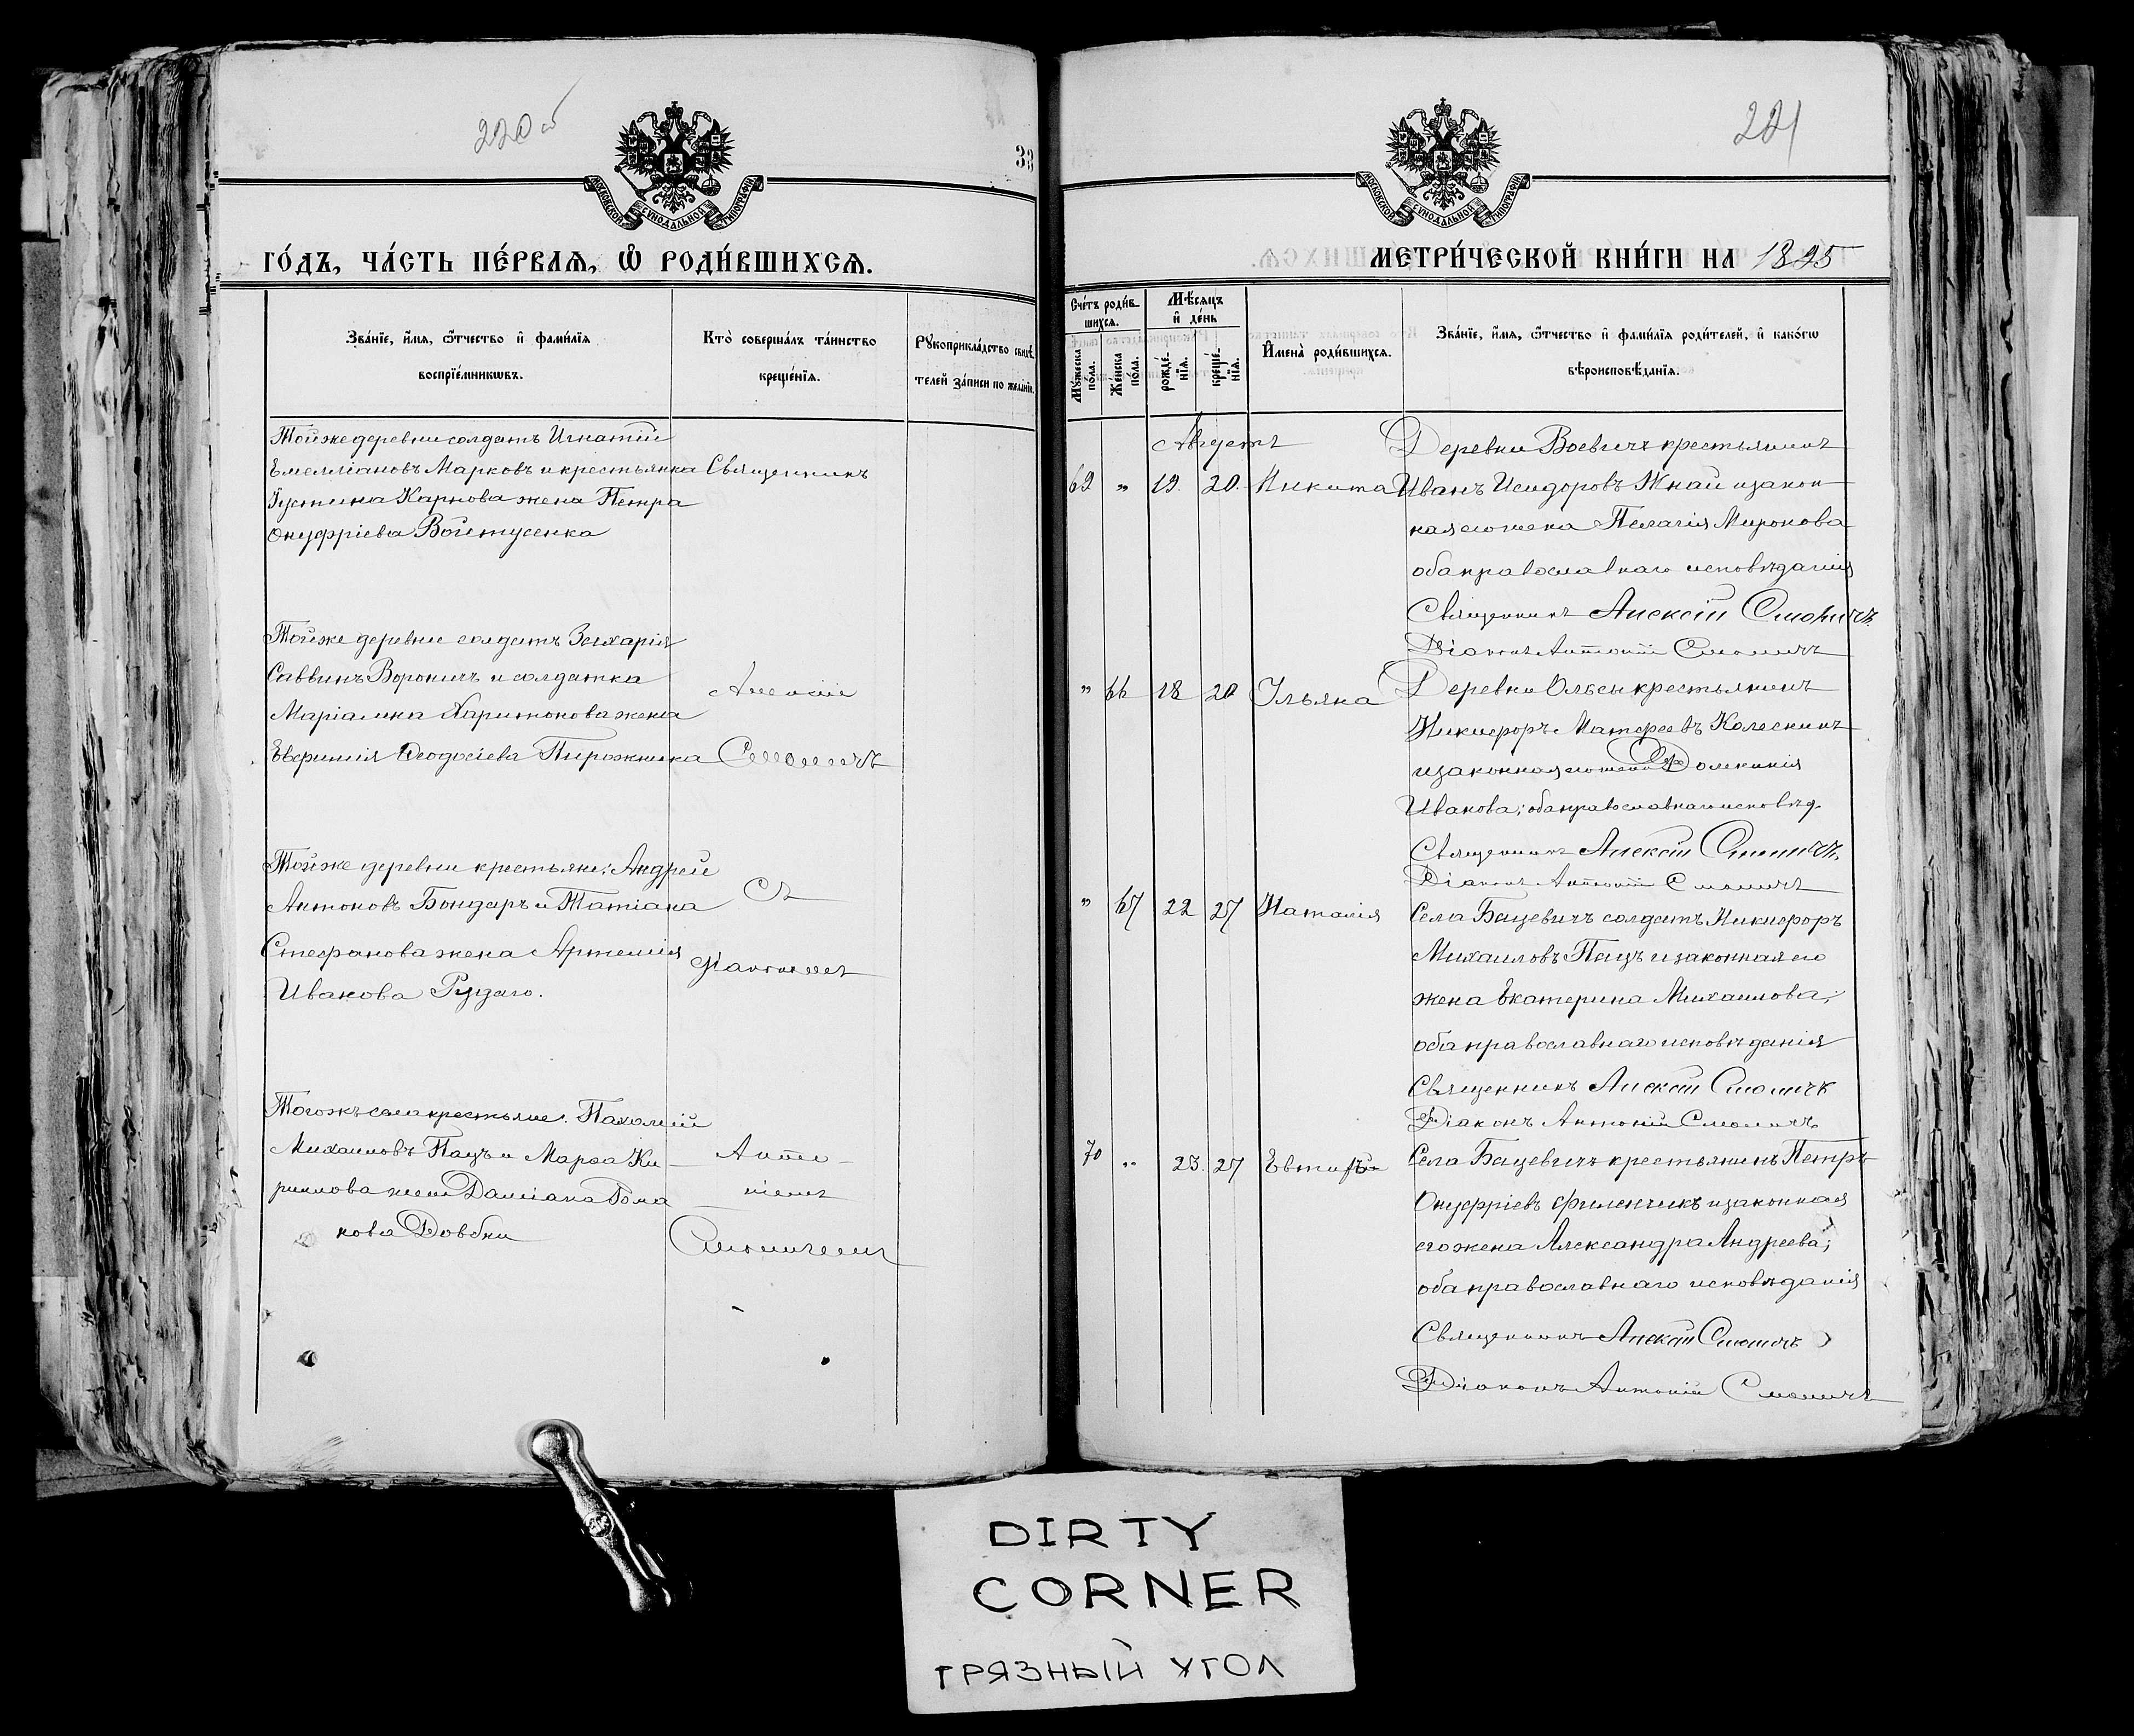 220 об
33
МОСКОВСКОЙ СѴНОДАЛЬНОЙ ТИПОГРАФІИ
ГО́ДЪ, ЧА́СТЬ ПЕ́РВАѦ, Ѽ РОДИ́ВШИХСѦ.
Зва́нїе, и҆́мѧ, ѻ҆́тчество и҆ фами́лїѧ
воспрїе́мникѡвъ.
Кто̀ соверша́лъ та́инство
креще́нїѧ.
Рꙋкоприкла́дство свидѣ́
телей за́писи по жела́нїю.
Тойже деревни солдатъ Игнатій
Емелліановъ Марковъ и крестьянка
Іустина Карпова жена Петра
Онуфріева Войтусенка
Священникъ
Тойже деревни солдатъ Захарія
Саввинъ Вороничъ и солдатка
Маріамна Харитонова жена
Евфимія Ѳеодосіева Пирожника
Алексій
Смоличъ
Тойже деревни крестьяне: Андрей
Антоновъ Бондарь и Татіана
Стефанова жена Артемія
Иванова Рудаго.
Съ
діакономъ
Тогожъ села крестьяне: Пахомій
Михаиловъ Пацъ и Марѳа Ки-
риллова жена Даміана Рома
нова Довбни
Анто-
ніемъ
Смоличемъ
221
МОСКОВСКОЙ СѴНОДАЛЬНОЙ ТИПОГРАФІИ
МЕТРИ́ЧЕСКОЙ КНИ́ГИ НА 1895
Сче́тъ роди́в-
шихсѧ.
Мꙋ́жеска по́ла.
Же́нска по́ла.
Мѣ́сѧцъ
и҆ де́нь
рожде́-нїѧ.
креще́-нїѧ.
И҆мена̀ роди́вшихсѧ.
Зва́нїе, и҆́мѧ, ѻ҆́тчество и҆ фами́лїѧ роди́телей, и҆ како́гѡ
вѣроисповѣ́данїѧ.
Августъ
69 " 19. 20. Никита
Деревни Воевичъ крестьянинъ
Иванъ Исидоровъ Жнай и закон-
ная его жена Пелагія Миронова
оба православнаго исповѣданія
Священникъ Алексій Смоличъ.
Діаконъ Антоній Смоличъ
" 66 18 20 Ульяна
Деревни Ольсы крестьянинъ
Никифоръ Матфеевъ Колеснинъ
и законная его жена Домникія
Иванова; оба православнаго исповѣд.
Священникъ Алексій Смоличъ.
Діаконъ Антоній Смоличъ
" 67 22 27 Наталія
Села Бацевичъ солдатъ Никифоръ
Михаиловъ Пацъ и законная его
жена Екатерина Михаилова;
оба православнаго исповѣданія
Священникъ Алексій Смоличъ
Діаконъ Антоній Смоличъ
70 " 23. 27
Села Бацевичъ крестьянинъ Петръ
Онуфріевъ Филенчикъ и законная
его жена Александра Андреева;
оба православнаго исповѣданія
Священникъ Алексій Смоличъ
Діаконъ Антоній Смоличъ
DIRTY
CORNER
ГРЯЗНЫЙ УГОЛ